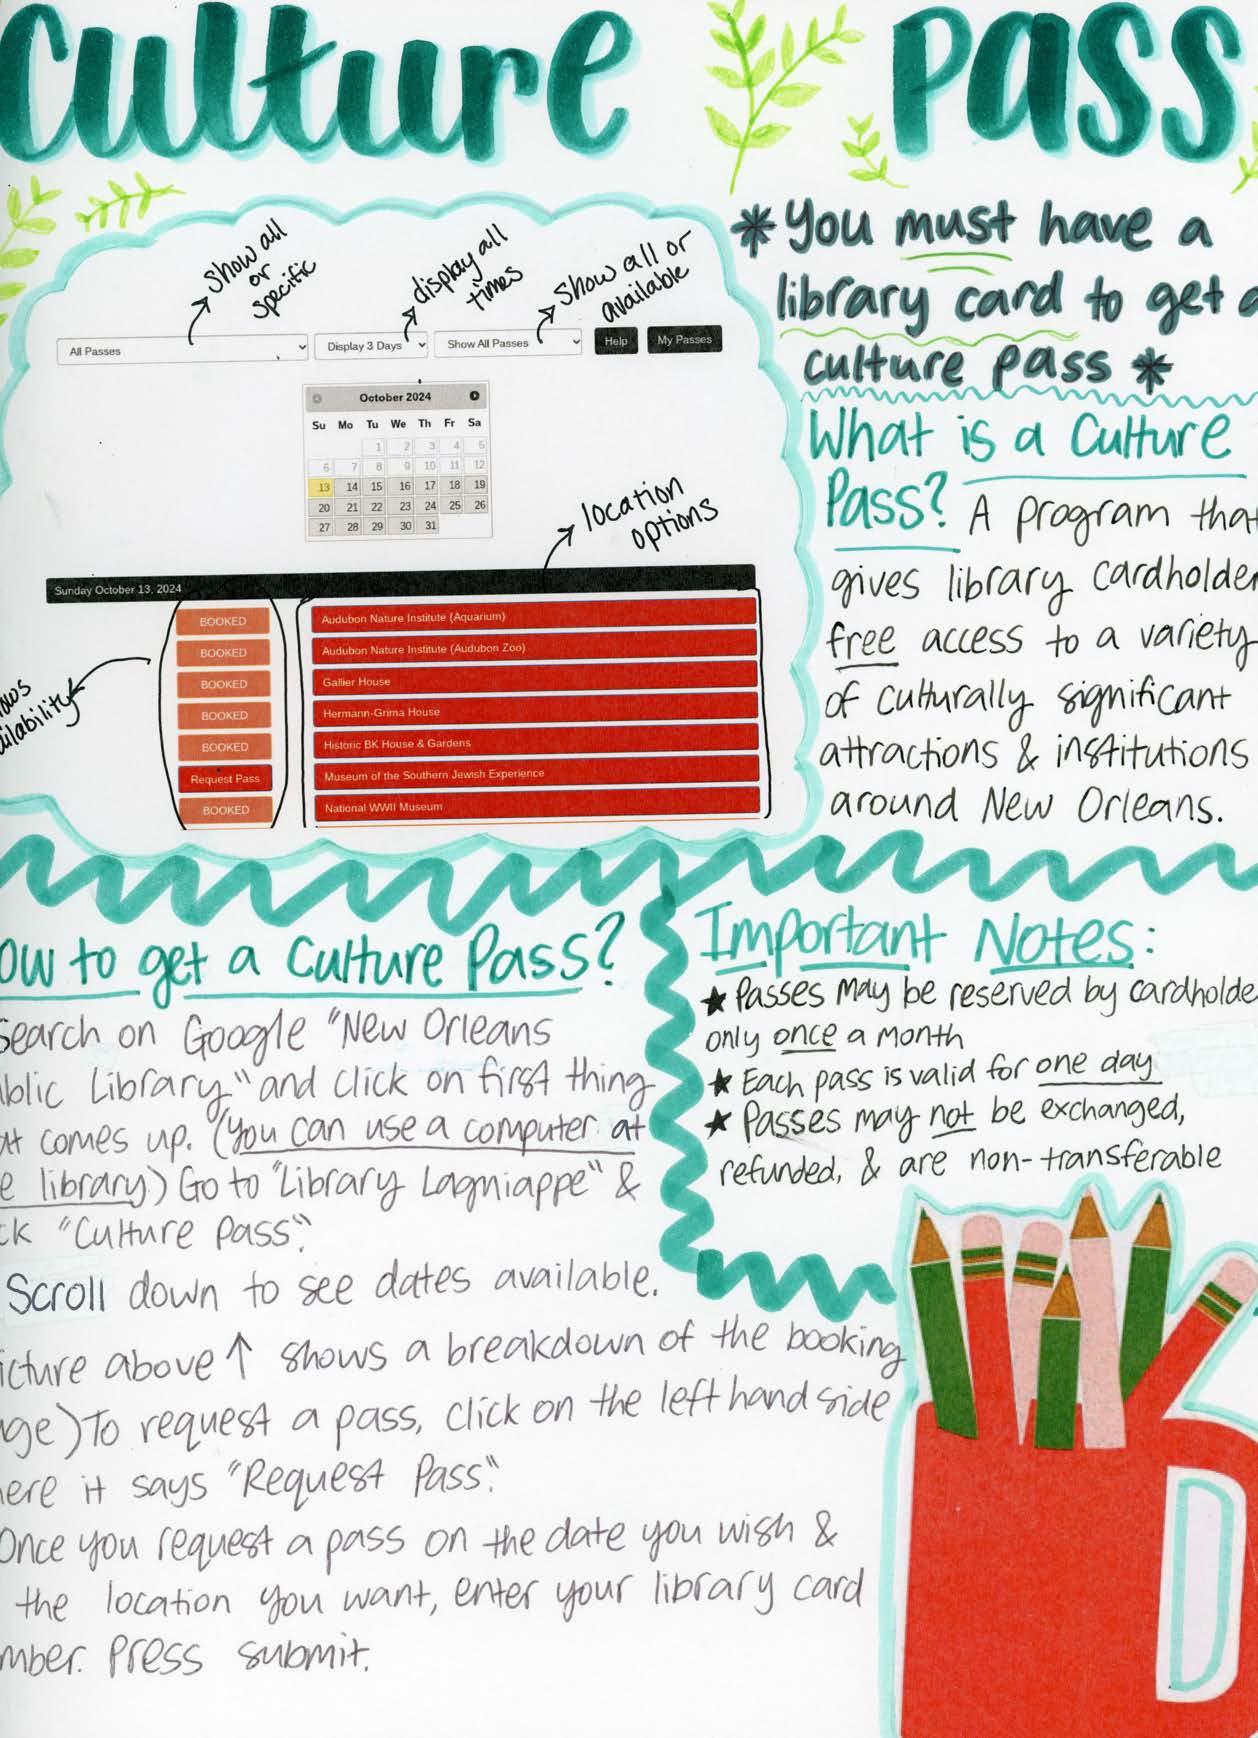 Culture Pass
*You must have a
library card to get a
culture pass *
show all
or
specific
display all
times
show all or
available
All Passes
Display 3 Days
Show All Passes
Help
My Passes
October 2024
Su Mo Tu We Th Fr Sa
1 2 3 4 5
6 7 8 9 10 11 12
13 14 15 16 17 18 19
20 21 22 23 24 25 26
27 28 29 30 31
location
options
Sunday October 13, 2024
BOOKED Audubon Nature Institute (Aquarium)
BOOKED Audubon Nature Institute (Audubon Zoo)
BOOKED Gallier House
BOOKED Hermann-Grima House
BOOKED Historic BK House & Gardens
Request Pass Museum of the Southern Jewish Experience
BOOKED National WWII Museum
ows
ailability
What is a Culture
Pass? A program that
gives library cardholde
free access to a variety
of culturally significant
attractions & institutions
around New Orleans.
ow to get a Culture Pass?
Search on Google "New Orleans
blic Library" and click on first thing
at comes up. (you can use a computer at
e library) Go to "Library Lagniappe" &
ck "Culture Pass".
Scroll down to see dates available.
icture above ↑ shows a breakdown of the booking
ge) To request a pass, click on the left hand side
ere it says "Request Pass".
Once you request a pass on the date you wish &
the location you want, enter your library card
mber. Press submit.
Important Notes:
★ Passes may be reserved by cardholde
only once a month
★ Each pass is valid for one day
★ Passes may not be exchanged,
refunded, & are non-transferable
D